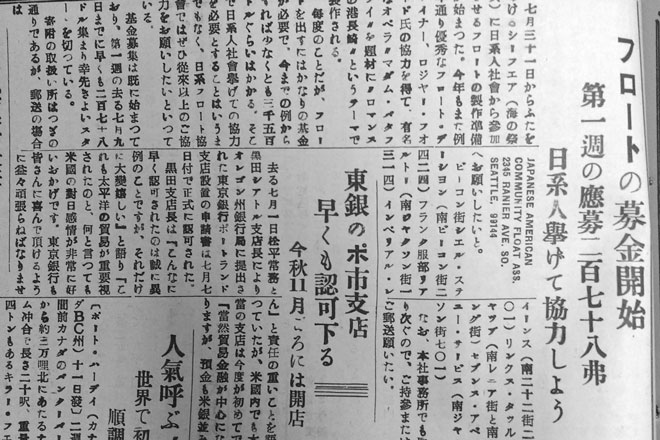 フロートの募金開始
第一週の應募二百七十八弗
日系人擧げて協力しよう
七月三十一日からふたを
けるシーフエア(海の祭
)に日系人社會から參加
せるフロートの製作準備
始まつた。今年もまた例
通り優秀なフロート・デ
イナー、ロジヤー・フオ
ド氏の協力を得て、有名
オペラ『マダム・バタフ
イ』を題材にロマンス
の港長崎』というテーマで
製作される。
毎度のことだが、フロー
トを出すにはかなりの基金
が必要で、今までの例から
すれば少なくとも三千五百
ドルぐらいはかかる。そこ
で日系人社會擧げての協力
を必要とすることはいうま
でもなく、日系フロート協
會ではぜひ從來以上のご協
力をお願いしたいといつて
いる。
基金募集は既に始まつて
おり、第一週の去る七月九
日までに早くも二百七十八
ドル集まり幸先きよいスタ
ートを切つている。
寄附の取扱い所はつぎの
通りであるが、郵送の場合
は
JAPANESE AMERICAN
COMMUNITY FLOAT ASS.
2345 RANIER AVE. SO.
SEATTLE, 99144
へお願いしたいと。
ビーコン街シエル・ステ
ーシヨン(南ビーコン街二
四二四)フランク服部リア
ルトー(南ロヤクソン街一
三一四)インペリアル・レ
イーンス(南二十二街二
〇一)リンクス・タツル
ヤツプ(南レニア街と南
ング街)セブンス・アベ
ニュー・サービス(南ジヤ
ソン街七〇一)
なお、本社事務所でも
り次ぐので、ご持參また
ご郵送願いたい。
東銀のポ市支店
早くも認可下る
今秋11月ごろには開店
去る七月一日松平常務と
黒田シアトル支店長により
オレゴン州銀行局に提出さ
れた東京銀行ポートランド
支店設置の申請書は七月七
日付で正式に認可された。
黒田支店長は『こんなに
早く認可されたのは誠に異
例のことですが、それだけ
に大變嬉しい』と語り『こ
れも太平洋の貿易が重要視
されたのと、何と言つても
米國の對日感情が非常に好
いおかげです。東京銀行も
皆さんに喜んで頂けるよう
に益々頑張らねばなりませ
ん』と責任の重いことを
つていたが、米國内でも
當の支店は今度が初めて
『當然貿易金融が中心に
りますが、預金も米銀並
人氣呼ぶ
世界で初
順調
〔ポート・ハーデイ(カナ
ダBC州)十一日發〕二週
間前カナダのナンタ
から約三万哩北にあたる
ム冲合で長さ二十呎、重量
四トンもあるキラー・フエ